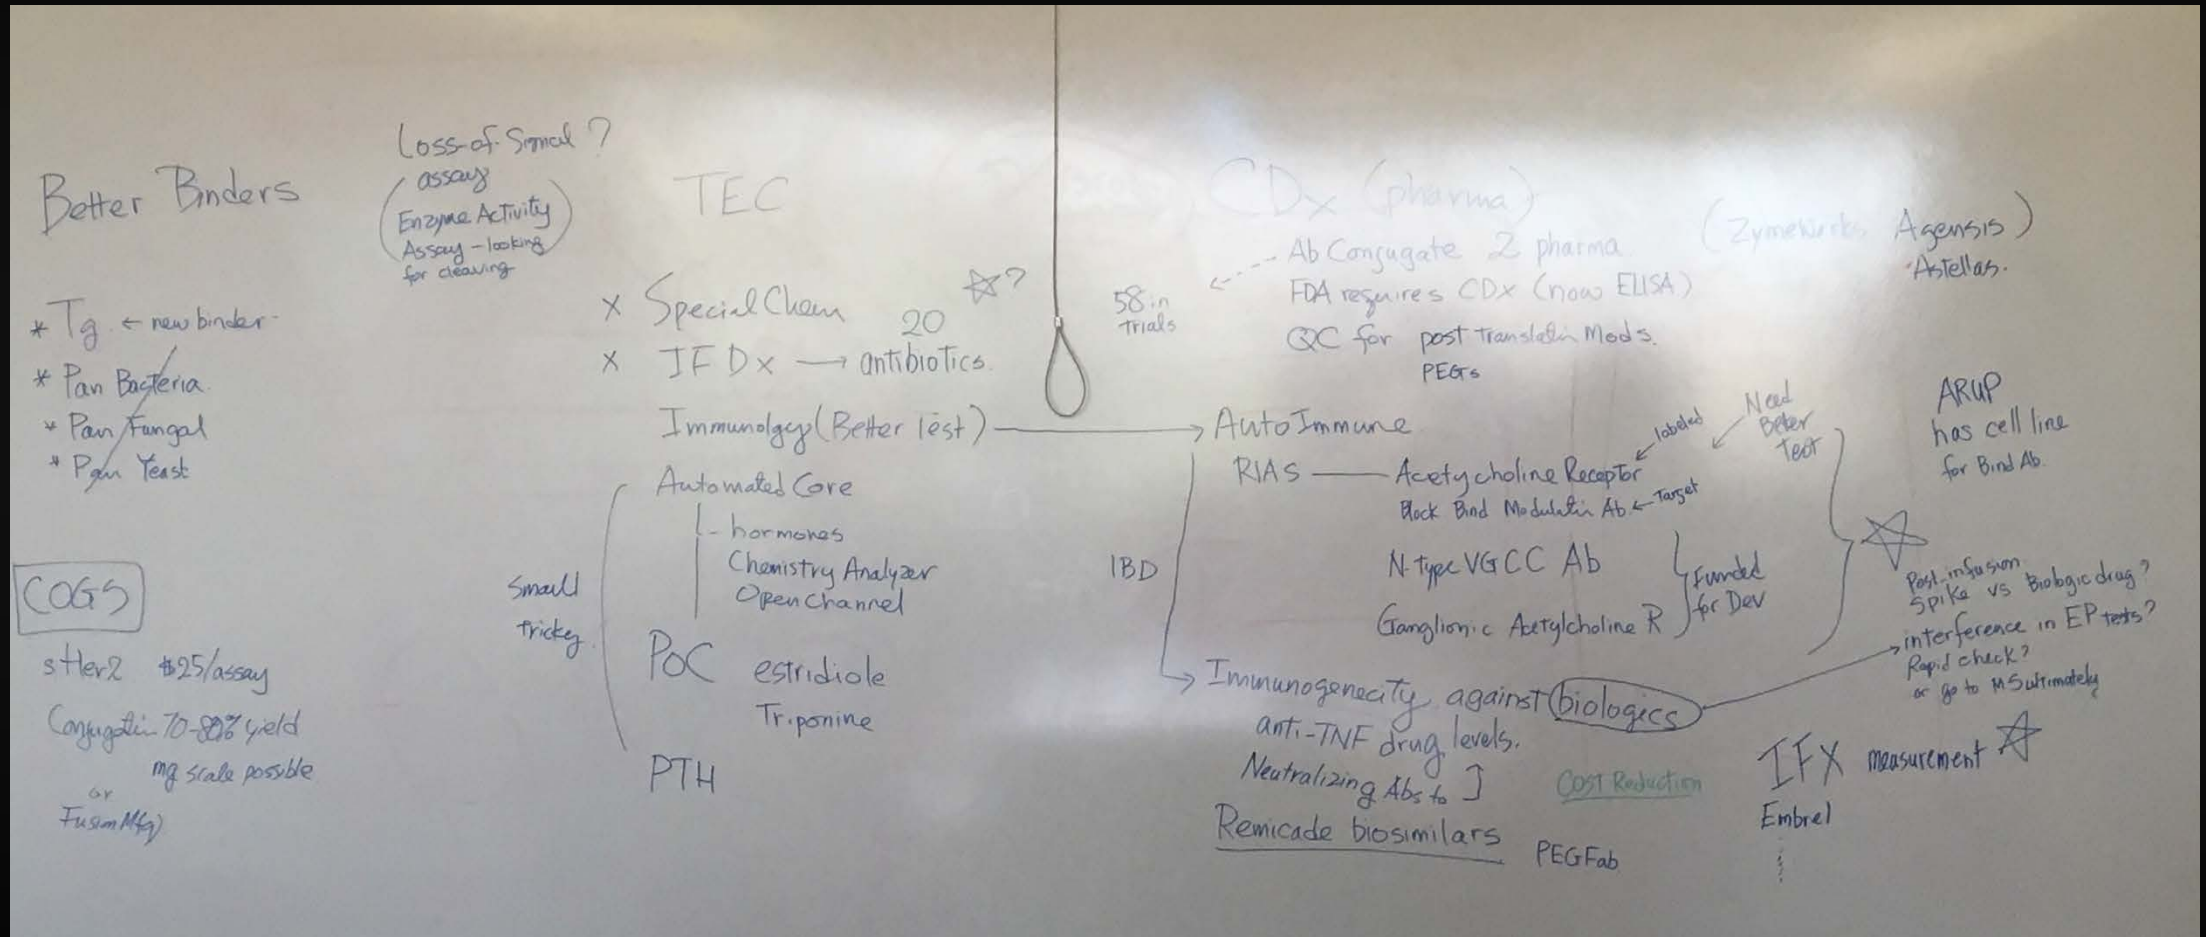 Better Binders
* Tg ← new binder
* Pan Bacteria
* Pan Fungal
* Pan Yeast
COGS
sHer2 $25/assay
Conjugatin 70-80% yield
mg scale possible
or
Fusion Mfg)
Loss-of-Signal ?
assay
(Enzyme Activity
Assay - looking
for cleaving)
TEC
X Special Chem
20 ☆?
X IFDx → antibiotics.
Immunolgy (Better Test) →
Automated Core
- hormones
Chemistry Analyzer
Open Channel
Small
tricky
PoC estridiole
Triponine
PTH
CDx (pharma)
(Zymeworks Agensis)
Astellas.
Ab Conjugate 2 pharma
58 in
trials
FDA requires CDx (now ELISA)
QC for post translatin Mods.
PEGs
AutoImmune
RIAS — Acetycholine Receptor
labeled
Need
Beter
Test
Block Bind Modulatin Ab ← Target
N-type VGCC Ab
Ganglionic Acetylcholine R
Funded
for Dev
ARUP
has cell line
for Bind Ab.
IBD
Immunogenecity against biologics
anti-TNF drug levels.
Neutralizing Abs to ]
Remicade biosimilars
PEGFab
Cost Reduction
Post-infusion
Spike vs Biologic drug?
interference in EP tests?
Rapid check?
or go to MS ultimately
IFX measurement ☆
Embrel